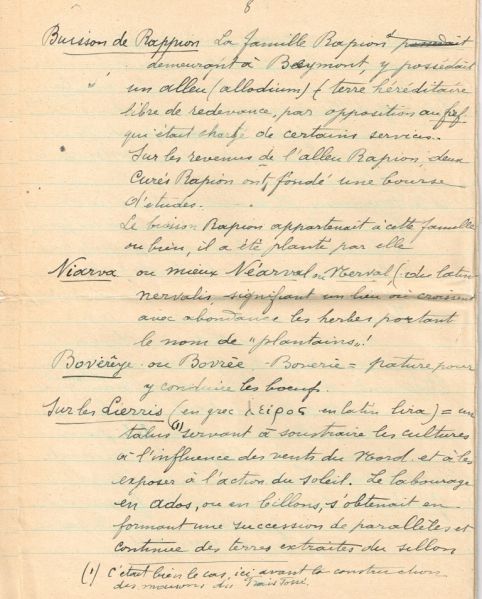 8
Buisson de Rappion La famille Rapion possedait
demeurant à Baymont, y possédait
un alleu (allodium) (terre héréditaire
libre de redevance, par opposition au fief
qui était chargé de certains services.
Sur les revenus de l'alleu Rapion, deux
Curés Rapion ont fondé une bourse
d'études.
Le buisson Rapion appartenait à cette famille
ou bien, il a été planté par elle
Niarva ou mieux Néarval ou Nerval, (du latin
nervalis, signifiant un lieu où croissent
avec abondance les herbes portant
le nom de "plantains"!
Bovèrêye ou Bovrée - Boverie = pature pour
y conduire les boeufs.
Sur les Lierris (en grec λειρος en latin lira) = un
talus (1) servant à soustraire les cultures
à l'influence des vents du Nord et à les
exposer à l'action du soleil. Le labourage
en ados, ou en billons, s'obtenait en
formant une succession de parallèles et
continue des terres extraites du sillons
(1) C'était bien le cas, ici avant la construction
des maisons du